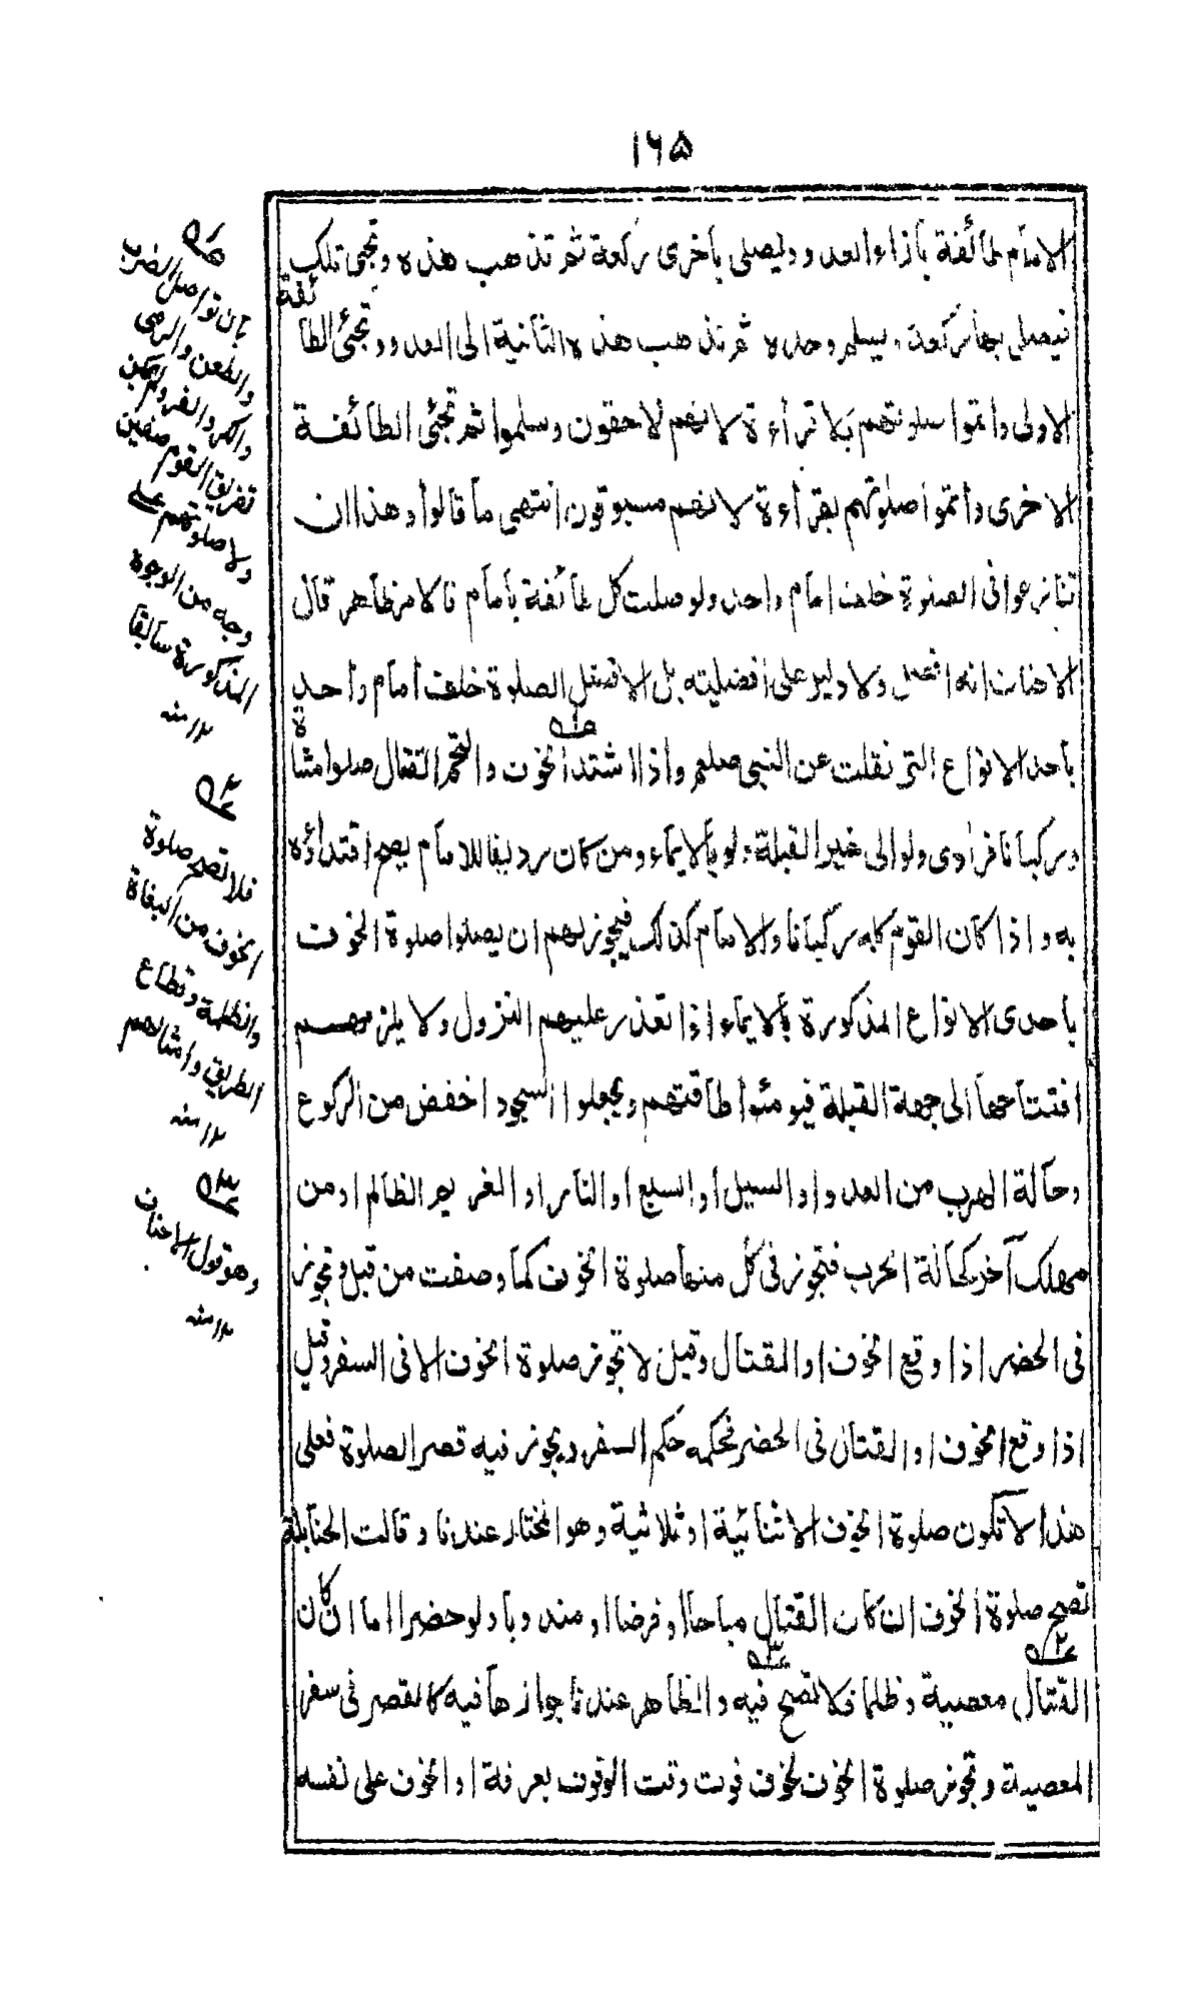 ١٦٥
الامام طائفة بازاء العدو وليصلى باخرى ركعة ثم تذهب هذه وتجئ تلك
فيصلى بها ركعة ويسلم وحده ثم تذهب هذه الثانية الى العدو وتجئ الطائفة
الاولى واتموا صلوتهم بلا قراءة لانهم لاحقون وسلموا ثم تجئى الطائفة
الاخرى واتموا صلوتهم بقراءة لانهم مسبوقون انتهى ما قالوا وهذا ان
تنازعوا فى الصلوة خلف امام واحد ولو صلت كل طائفة بامام فالامر ظاهر قال
الاحناف انه افضل ولا دليل على افضليته بل الافضل الصلوة خلف امام واحد
باحد الانواع التى نقلت عن النبى صلعم واذا اشتد الخوف والتحم القتال صلوا مشاة
وركبانا فرادى ولو الى غير القبلة ولو بالايماء ومن كان رديفا للامام يصح اقتداؤه
به واذا كان القوم كله ركبانا والامام كذلك فيجوز لهم ان يصلوا صلوة الخوف
باحدى الانواع المذكورة بالايماء اذا تعذر عليهم النزول ولا يلزمهم
افتتاحها الى جهة القبلة فيومئوا طاقتهم ويجعلوا السجود اخفض من الركوع
وحالة الهرب من العدو او السيل او السبع او النار او الغريم الظالم او من
مهلك آخر كحالة الحرب فتجوز فى كل منها صلوة الخوف كما وصفت من قبل وتجوز
فى الحضر اذا وقع الخوف او المقتال وقيل لا تجوز صلوة الخوف الا فى السفر وقيل
اذا وقع الخوف او القتال فى الحضر فحكمه حكم السفر ويجوز فيه قصر الصلوة فعلى
هذا لا تكون صلوة الخوف الا ثنائية او ثلاثية وهو المختار عندنا وقالت الحنابلة
تصح صلوة الخوف ان كان القتال مباحا او فرضا او مندوبا ولو حضرا اما ان كان
القتال معصية وظلما فلا تصح فيه والظاهر عندنا جوازها فيه كالقصر فى سفر
المعصية وتجوز صلوة الخوف لخوف فوت وقت الوقوف بعرفة او الخوف على نفسه
١
بان تواصل الضرب
والطعن والرمى
والكر والفر ولم يمكن
تفريق القوم صفين
ولا صلوتهم على
وجه من الوجوه
المذكورة سابقا
١٢ منه
٢
فلا تصح صلوة
الخوف من البغاة
والظلمة وقطاع
الطريق وامثالهم
١٢ منه
٣
وهو قول الاحناف
١٢ منه